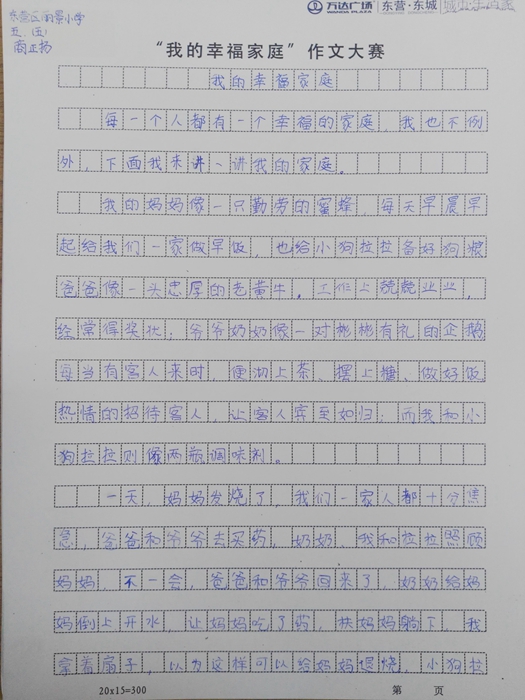 万达广场 东营·东城
WANDA PLAZA
东营区丽景小学
五.(五)
商正扬
“我的幸福家庭”作文大赛
我的幸福家庭
每一个人都有一个幸福的家庭,我也不例
外,下面我来讲一讲我的家庭。
我的妈妈像一只勤劳的蜜蜂,每天早晨早
起给我们一家做早饭,也给小狗拉拉备好狗粮
爸爸像一头忠厚的老黄牛,工作上兢兢业业,
经常得奖状;爷爷奶奶像一对彬彬有礼的企鹅
每当有客人来时,便沏上茶、摆上糖、做好饭
热情的招待客人,让客人宾至如归;而我和小
狗拉拉则像两瓶调味剂。
一天,妈妈发烧了,我们一家人都十分焦
急,爸爸和爷爷去买药,奶奶、我和拉拉照顾
妈妈,不一会,爸爸和爷爷回来了,奶奶给妈
妈倒上开水,让妈妈吃了药,扶妈妈躺下,我
拿着扇子,以为这样可以给妈妈退烧,小狗拉
20x15=300 第 页